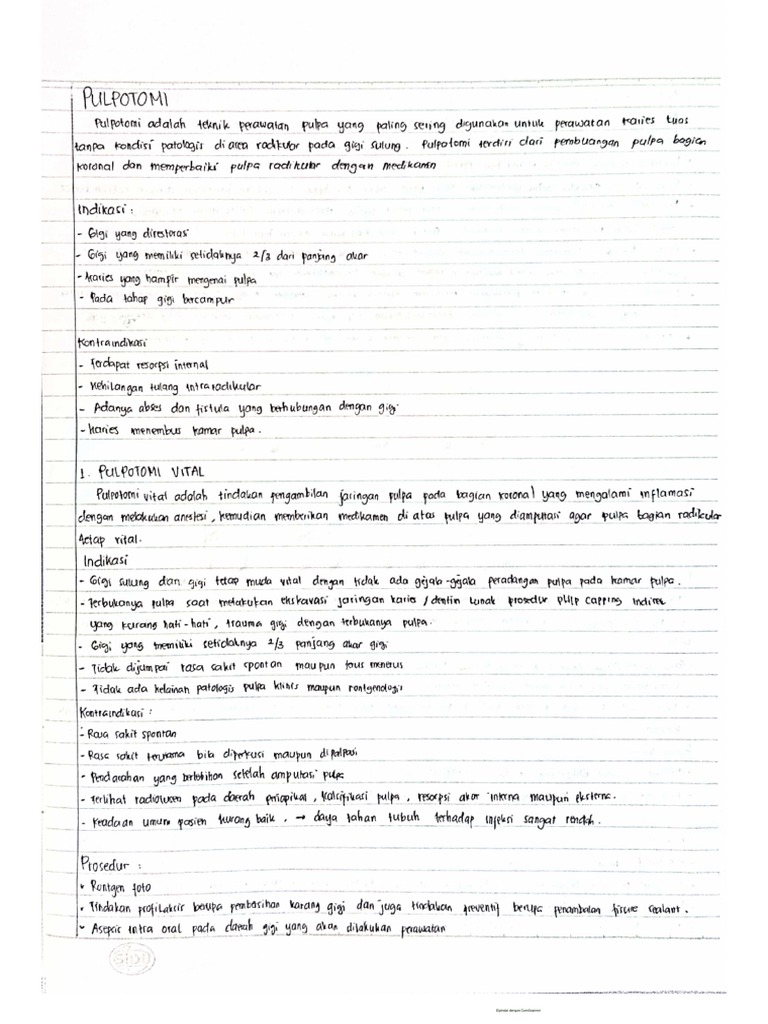 PULPOTOMI
Pulpotomi adalah teknik perawatan pulpa yang paling sering digunakan untuk perawatan karies luas
tanpa kondisi patologis di area radikular pada gigi sulung. Pulpotomi terdiri dari pembuangan pulpa bagian
koronal dan memperbaiki pulpa radikular dengan medikamen
Indikasi :
- Gigi yang direstorasi
- Gigi yang memiliki setidaknya 2/3 dari panjang akar
- Karies yang hampir mengenai pulpa
- Pada tahap gigi bercampur
Kontraindikasi
- Terdapat resorpsi internal
- Kehilangan tulang intraradikular
- Adanya abses dan fistula yang berhubungan dengan gigi
- Karies menembus kamar pulpa.
1. PULPOTOMI VITAL
Pulpotomi vital adalah tindakan pengambilan jaringan pulpa pada bagian koronal yang mengalami inflamasi
dengan melakukan anestesi, kemudian memberikan medikamen di atas pulpa yang diamputasi agar pulpa bagian radikular
tetap vital.
Indikasi
- Gigi sulung dan gigi tetap muda vital dengan tidak ada gejala-gejala peradangan pulpa pada kamar pulpa.
- Terbukanya pulpa saat melakukan ekskavasi jaringan karies / dentin lunak prosedur pulp capping indirek
yang kurang hati-hati, trauma gigi dengan terbukanya pulpa.
- Gigi yang memiliki setidaknya 2/3 panjang akar gigi
- Tidak dijumpai rasa sakit spontan maupun terus menerus
- Tidak ada kelainan patologis pulpa klinis maupun rontgenologis
Kontraindikasi :
- Rasa sakit spontan
- Rasa sakit terutama bila diperkusi maupun dipalpasi
- Pendarahan yang berlebihan setelah amputasi pulpa
- Terlihat radiolusen pada daerah periapikal, kalsifikasi pulpa, resorpsi akar interna maupun eksterna.
- Keadaan umum pasien kurang baik, → daya tahan tubuh terhadap infeksi sangat rendah.
Prosedur :
• Rontgen foto
• Tindakan profilaksis berupa pembersihan karang gigi dan juga tindakan preventif berupa penambalan fissure sealant.
• Asepsis intra oral pada daerah gigi yang akan dilakukan perawatan
SIDU
Dipindai dengan CamScanner